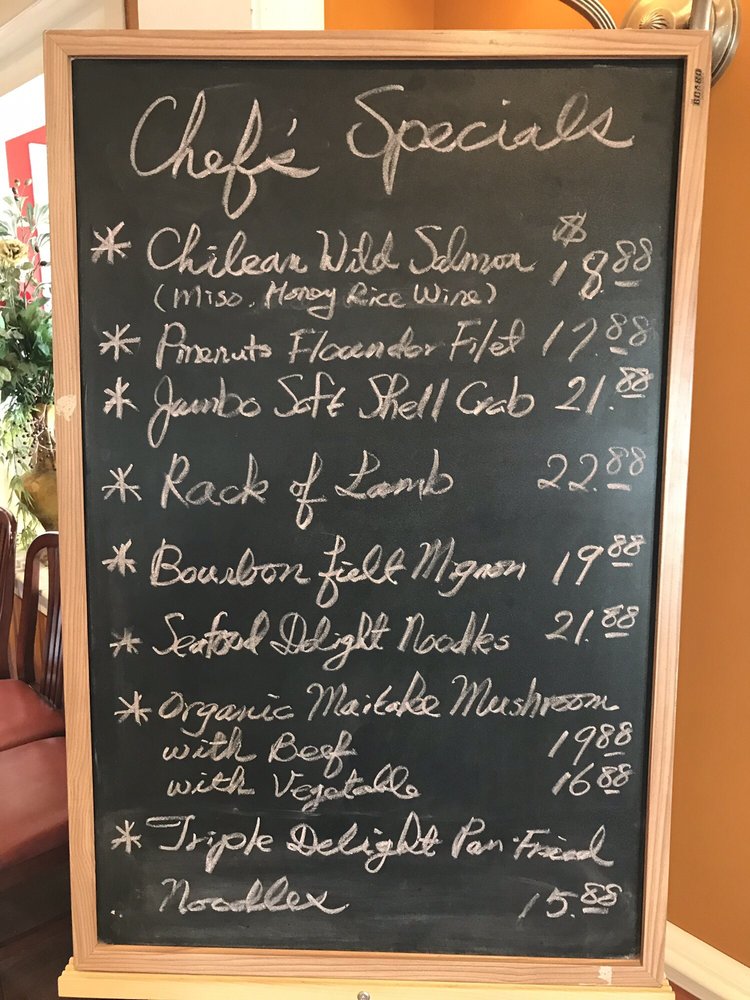 Chef's Specials
* Chilean Wild Salmon $18.88
(Miso, Honey Rice Wine)
* Pinenuts Flounder Filet 17.88
* Jumbo Soft Shell Crab 21.88
* Rack of Lamb 22.88
* Bourbon filet Mignon 19.88
* Seafood Delight Noodles 21.88
* Organic Maitake Mushroom
with Beef 1988
with Vegetable 1688
* Triple Delight Pan-Fried
Noodles 15.88